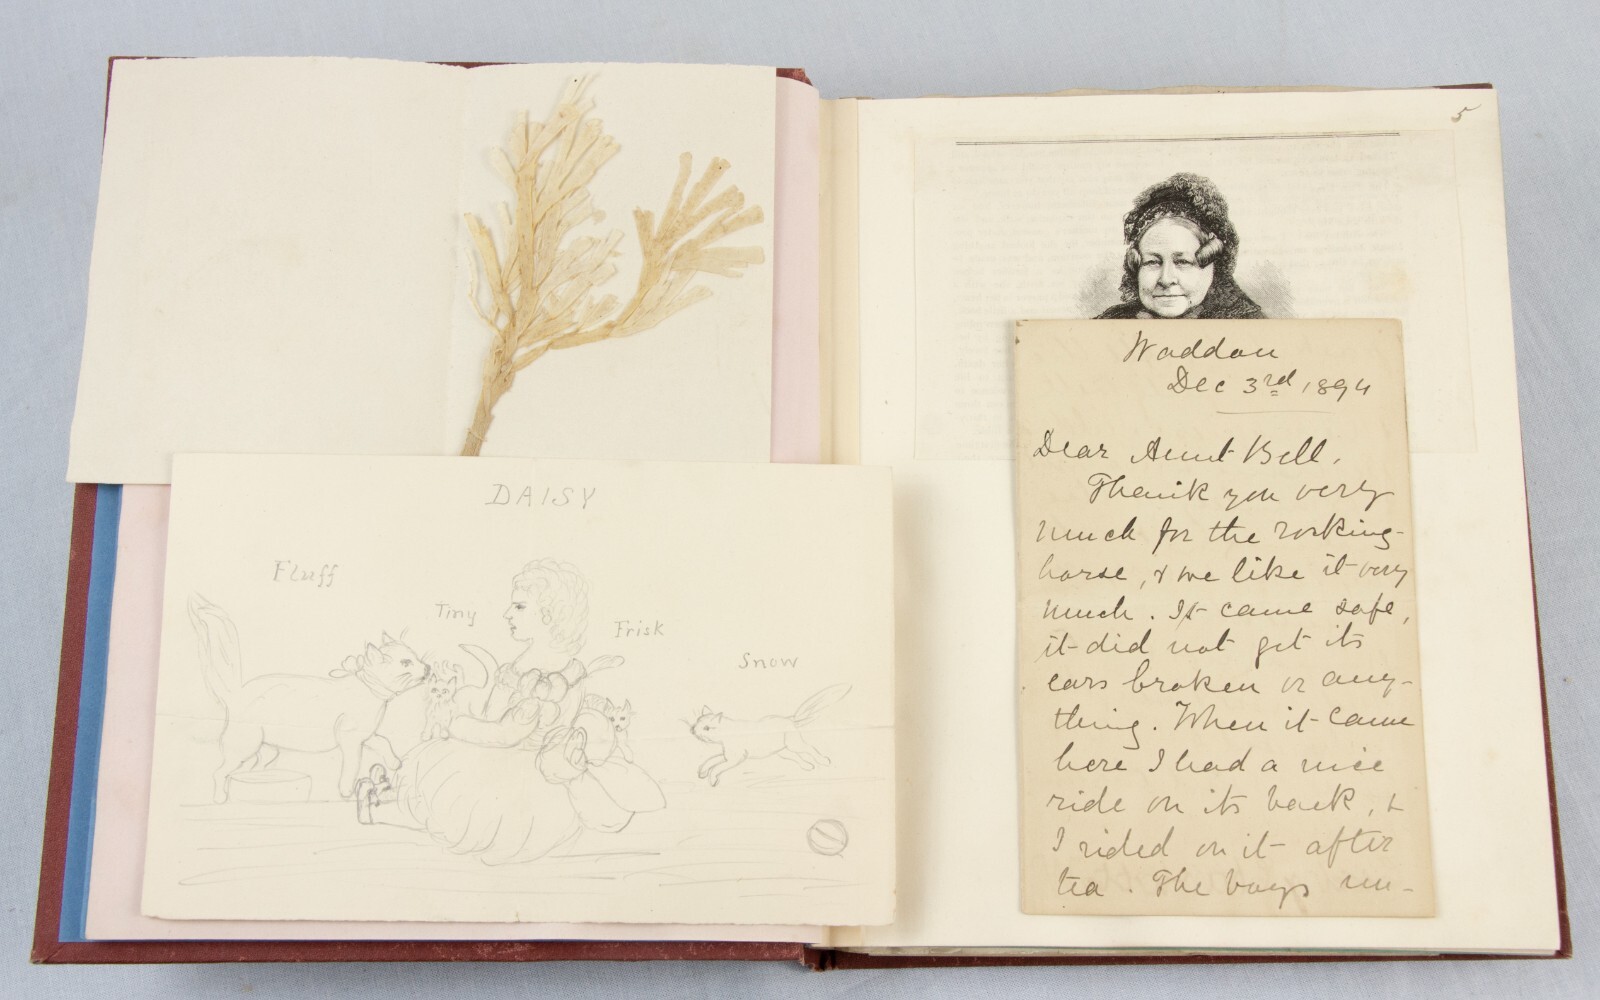 DAISY
Fluff
Tiny
Frisk
Snow
5
Waddon
Dec 3rd, 1894
Dear Aunt Bell,
Thank you very
much for the rocking-
horse, & we like it very
much. It came safe,
it did not get its
ears broken or any-
thing. When it came
here I had a nice
ride on its back, &
I rided on it after
tea. The boys un-